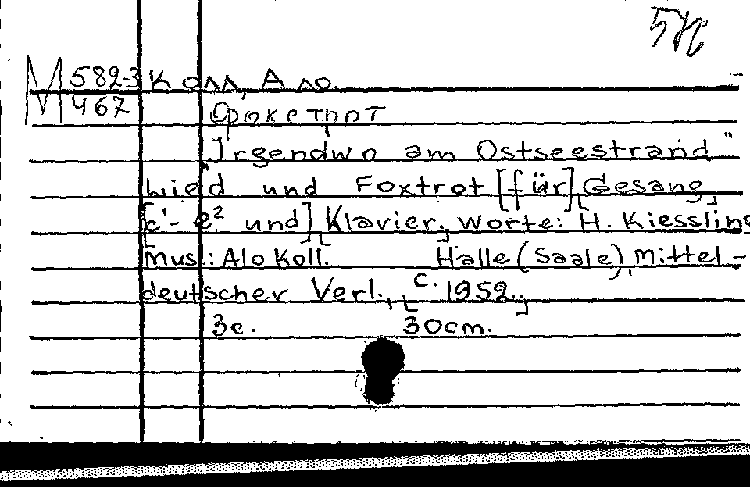 М 582-3 Колл, Ало.
М 467 Фокстрот
„Irgendwo am Ostseestrand"
Lied und Foxtrot [für] Gesang
[c'- e² und] Klavier, Worte: H. Kiessling
Mus.: Alo Koll. Halle (Saale), Mittel-
deutscher Verl., [c. 1952.]
3c. 30cm.